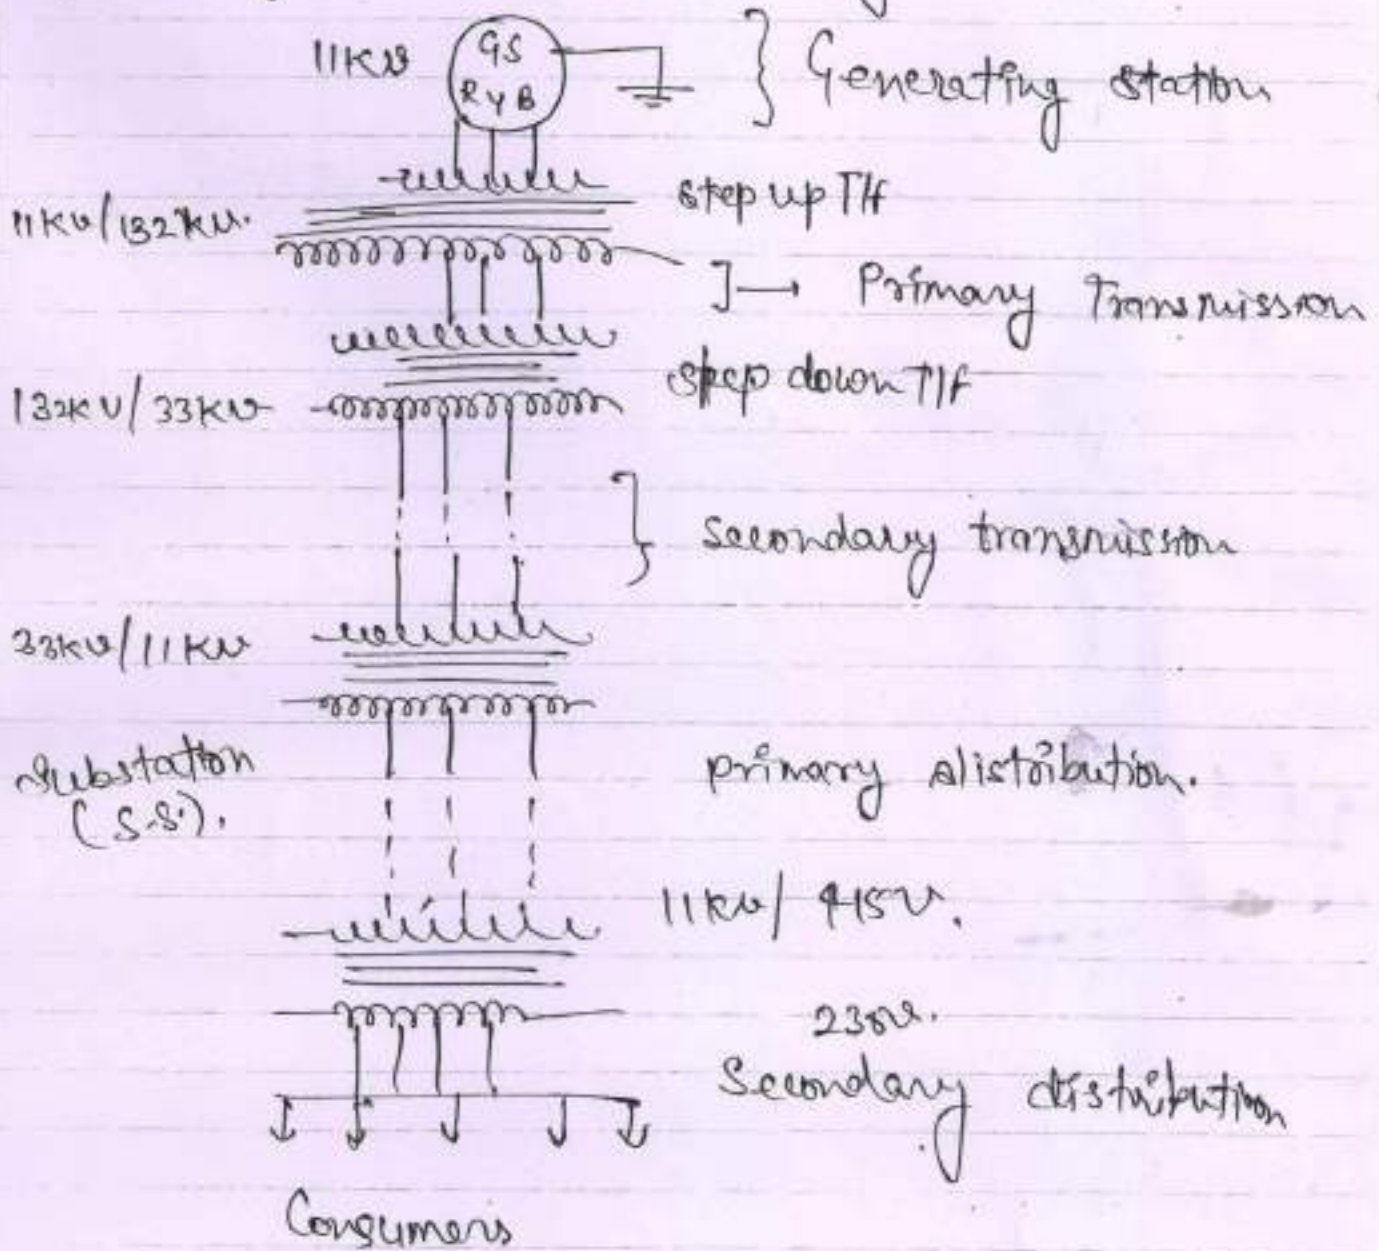 11KV
GS
R Y B
Generating station
step up T/f
11KV/132KV.
Primary Transmission
step down T/f
132KV/33KV
Secondary transmission
33KV/11KV
Substation
(S.S.).
primary distribution.
11KV/415V.
230V.
Secondary distribution
Consumers